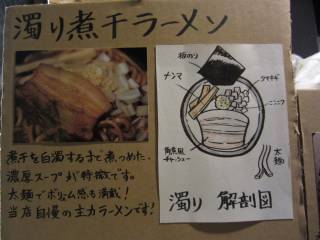 濁り煮干ラーメン
煮干を白濁するまで煮つめた、
濃厚スープが特徴です。
太麺でボリューム感も満載!
当店自慢の主力ラーメンです!
板のり
メンマ
タマネギ
ニンニク
角煮風
チャーシュー
太麺
濁り 解剖図